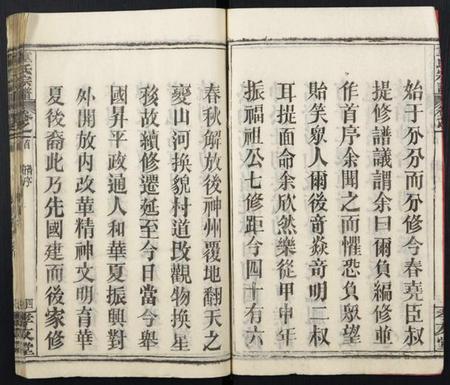 始于分分而分修今春堯臣叔
提修譜議謂余曰爾負編修並
作首序余聞之而懼恐負眾望
貽笑眾人爾後奇焱奇明二叔
耳提面命余欣然樂從甲申年
振福祖公七修距今四十有六
春秋解放後神州覆地翻天之
變山河換貌村道改觀物換星
移故續修遷延至今日當今舉
國昇平政通人和華夏振興對
外開放內改華精神文明育華
夏後裔此乃先國建而後家修
氏宗譜
卷之首
序
四
孝友堂